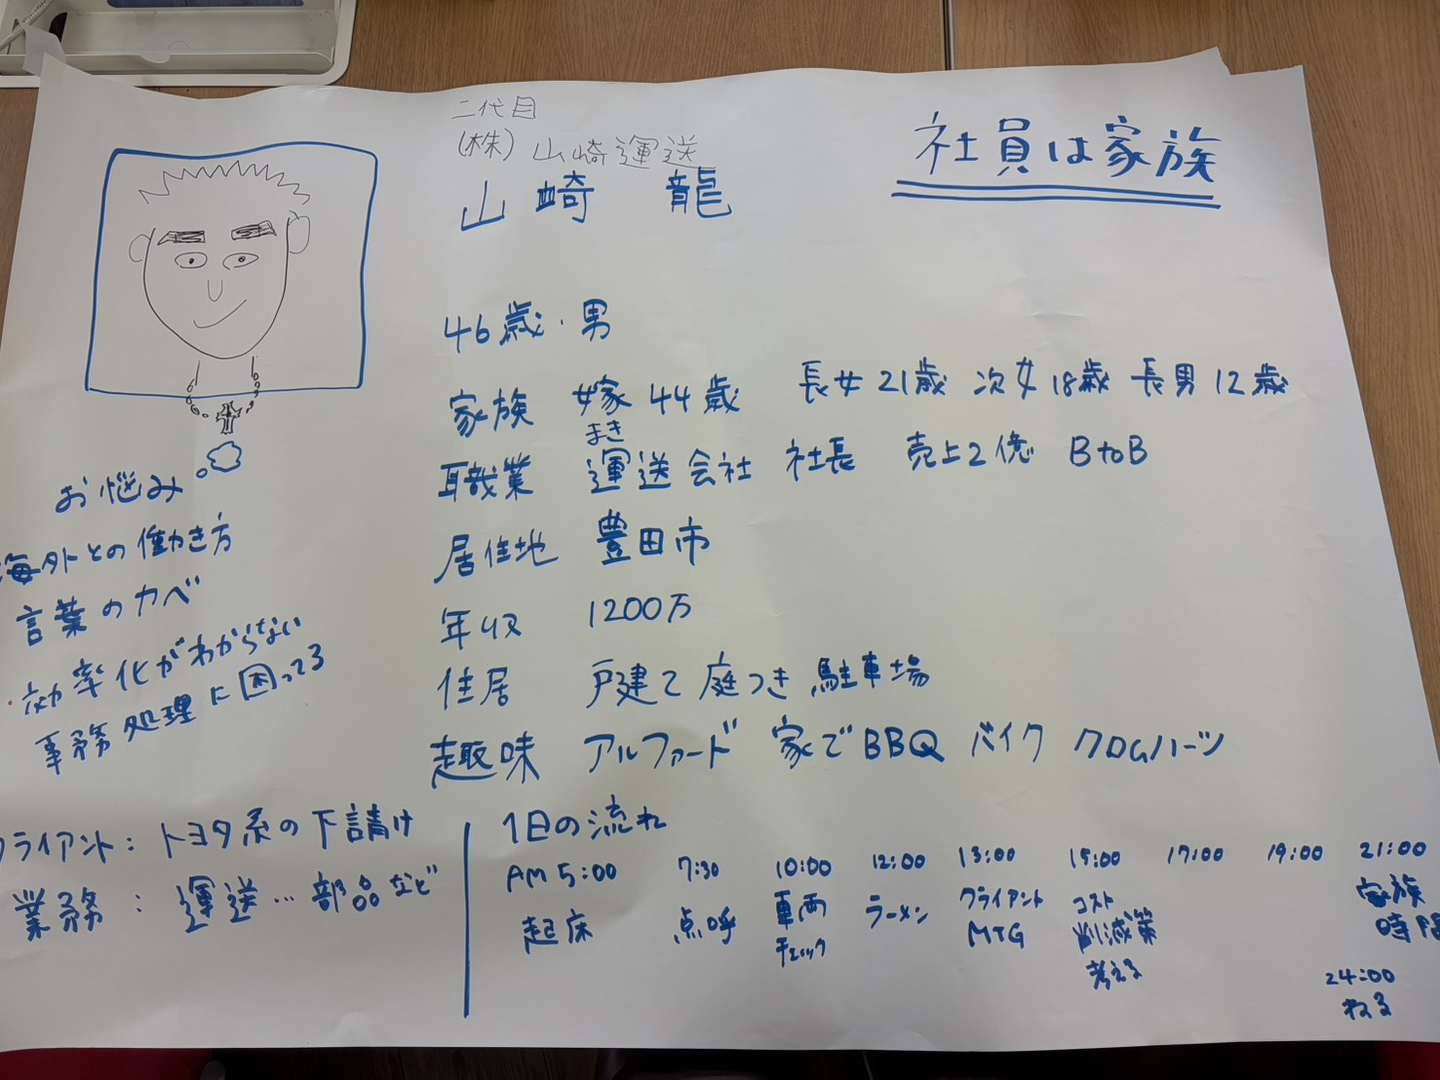 二代目
(株) 山崎運送
山崎 龍
社員は家族
46歳・男
家族 嫁 44歳 長女21歳 次女18歳 長男12歳
まき
職業 運送会社 社長 売上2億 BtoB
居住地 豊田市
年収 1200万
住居 戸建て 庭つき 駐車場
趣味 アルファード 家でBBQ バイク クロムハーツ
お悩み
海外との働き方
言葉のカベ
効率化がわからない
事務処理に困ってる
クライアント: トヨタ系の下請け
業務: 運送…部品など
1日の流れ
AM 5:00 7:30 10:00 12:00 13:00 15:00 17:00 19:00 21:00
起床 点呼 車両 ラーメン クライアント コスト 家族
チェック MTG 削減策 時間
考える
24:00
ねる